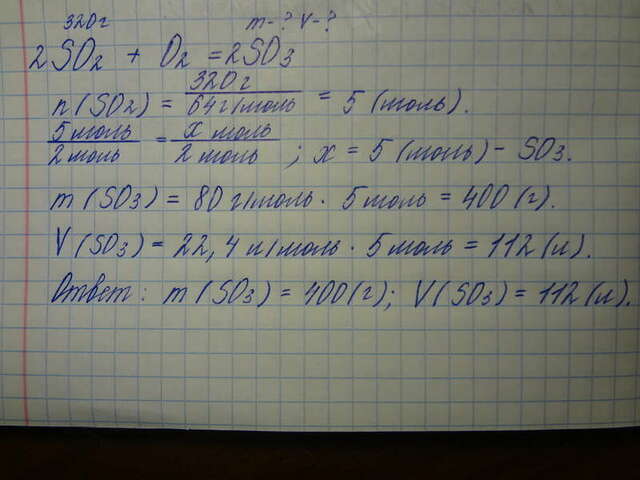 320г m-? V-?
2SO2 + O2 = 2SO3
n(SO2) = 320г/64г/моль = 5 (моль).
5 моль/2 моль = x моль/2 моль; x = 5 (моль) - SO3.
m(SO3) = 80 г/моль · 5 моль = 400 (г).
V(SO3) = 22,4 л/моль · 5 моль = 112 (л).
Ответ: m(SO3) = 400(г); V(SO3) = 112 (л).